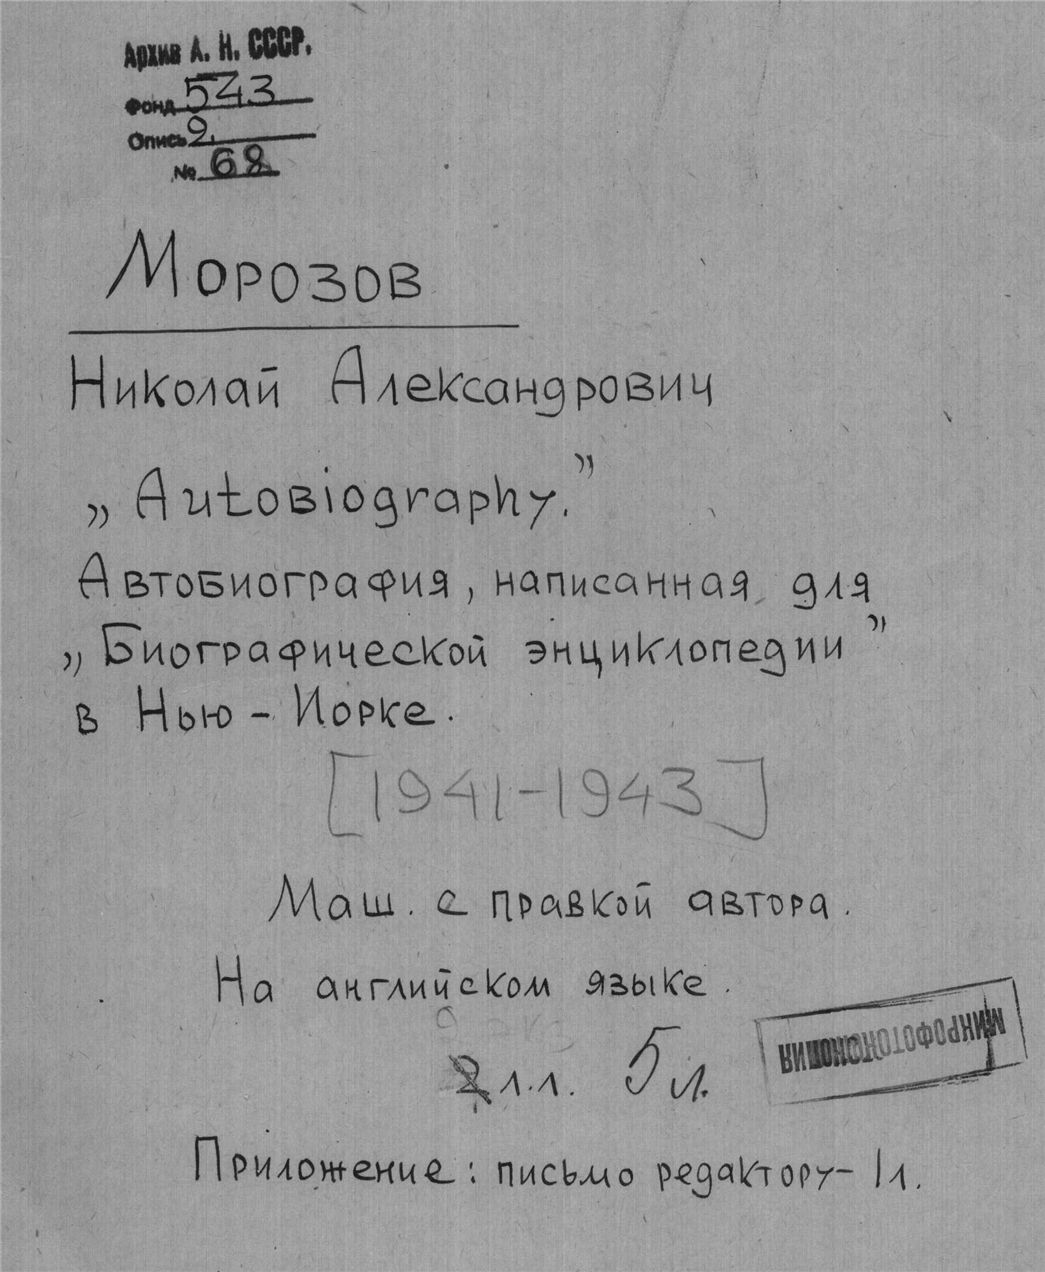 Архив А. Н. СССР.
Фонд 543
Опись 2.
№ 68
Морозов
Николай Александрович
„Autobiography.”
Автобиография, написанная для
„Биографической энциклопедии”
в Нью-Йорке.
[1941-1943]
Маш. с правкой автора.
На английском языке.
2 л.л. 5 л.
МИКРОФОТОКОПИЯ
Приложение: письмо редактору- 1л.